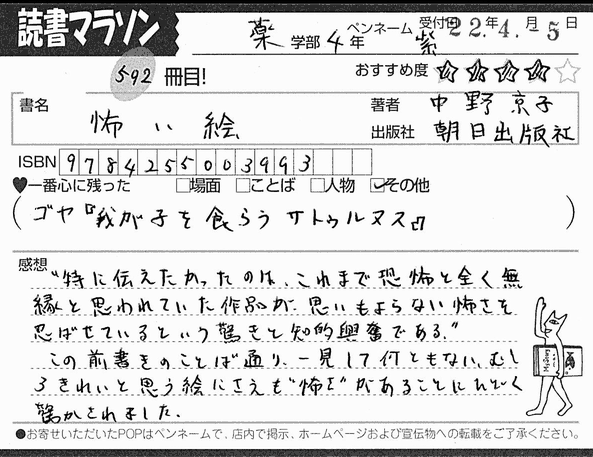 読書マラソン
薬 学部 4 年
ペンネーム 紫
受付印 22.年4.月-5日
592 冊目!
おすすめ度 ★★★★☆
書名 怖い絵
著者 中野京子
出版社 朝日出版社
ISBN 9784255003993
♥一番心に残った □場面 □ことば □人物 ☑その他
(ゴヤ『我が子を食らうサトゥルヌス』)
感想
“特に伝えたかったのは、これまで恐怖と全く無
縁と思われていた作品が、思いもよらない怖さを
忍ばせているという驚きと知的興奮である.”
この前書きのことば通り、一見して何ともない、むし
ろきれいと思う絵にさえも“怖さ”があることにひどく
驚かされました.
●お寄せいただいたPOPはペンネームで、店内で掲示、ホームページおよび宣伝物への転載をご了承ください。